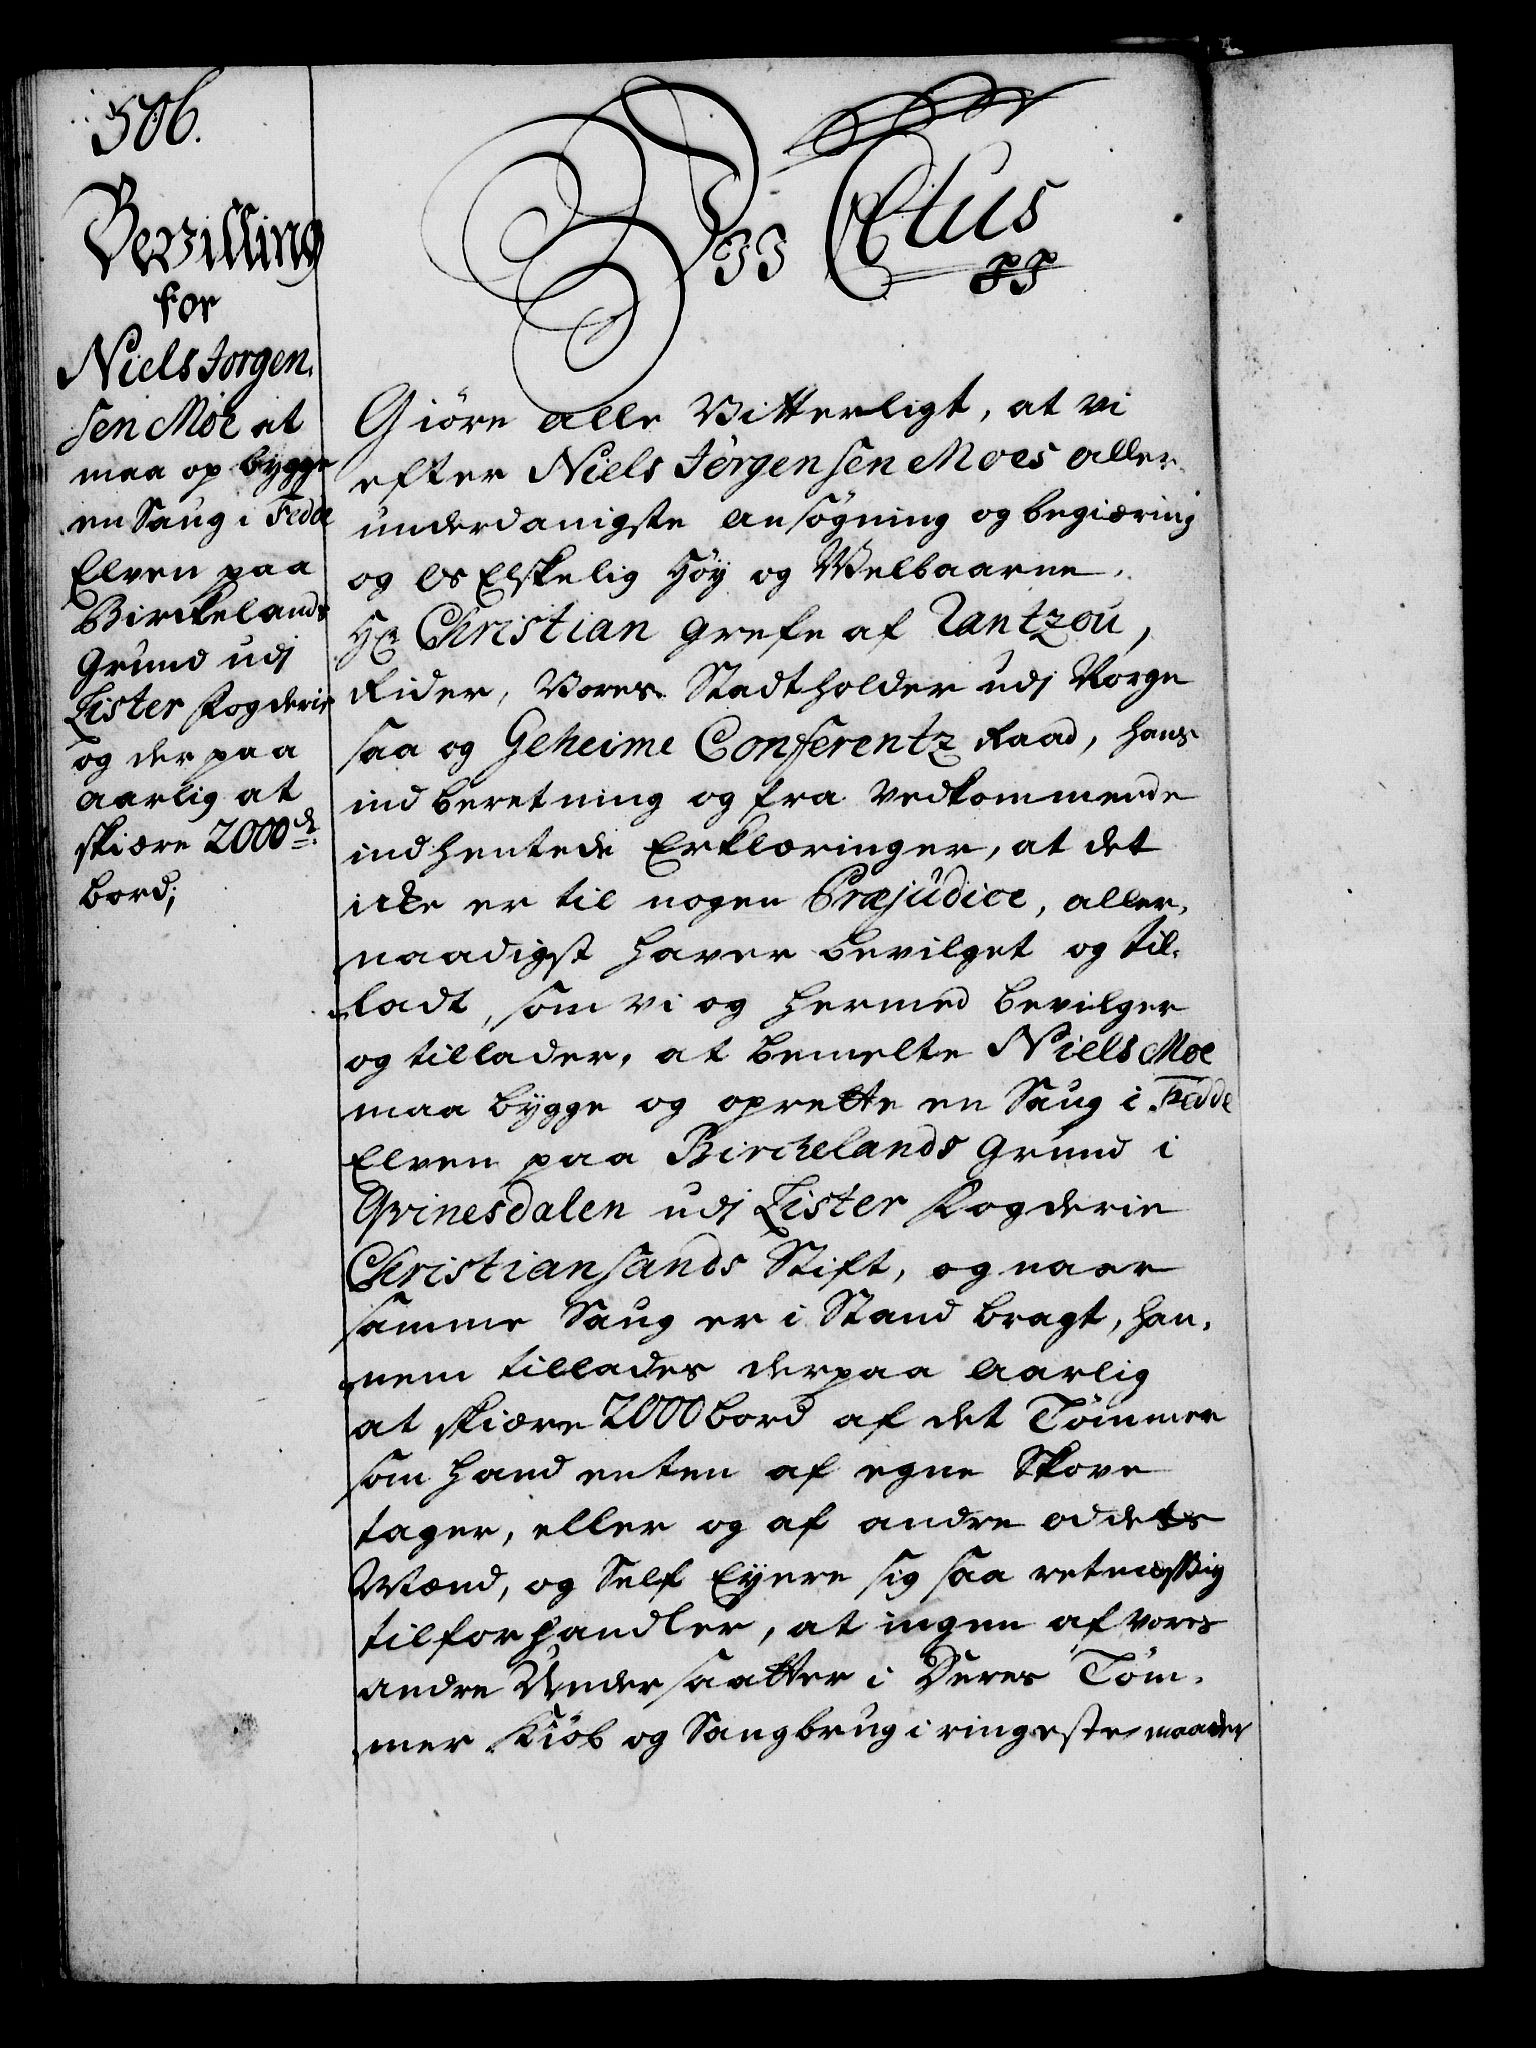 506.
Bevilling
for
Niels Jorgen,
sen Moe at
maa op bÿgge
en Saug i Fedde
Elven paa
Birckelands
Grund udj
Lister fogderie
og der paa
aarlig at
skiære 2000 d.
bord;
Vii Ctus
Giöre alle Vitterligt, at vi
efter Niels Jörgensen Moes aller,
underdanigste ansögning og begiæring
og Os Elskelig Höÿ og Welbaarne,
Hr Christian grefe af Rantzou,
Rider, Vores Stadtholder udj Norge
saa og Geheime Conferentz Raad, hans
indberetning og fra vedkommende
indhentede Erklæringer, at det
icke er til nogen Præjudice, aller,
naadigst haver bevilget og til,
ladt, som vi og hermed bevilger
og tillader, at bemelte Niels Moe
maa bÿgge og oprette en Saug i Fedde
Elven paa Birckelands Grund i
Qvinesdalen udj Lister fogderie
Christiansands Stift, og naar
samme Saug er i Stand bragt, han,
nem tillades derpaa aarlig
at skiære 2000 bord af det Tömmer
som hand enten af egne Skove
tager, eller og af andre oddels
Mænd, og Self Eÿere sig saa retmæssig
tilforhandler, at ingen af vores
andre Undersaatter i Deres Töm,
mer Kiöb og Saugbrug i ringeste maader